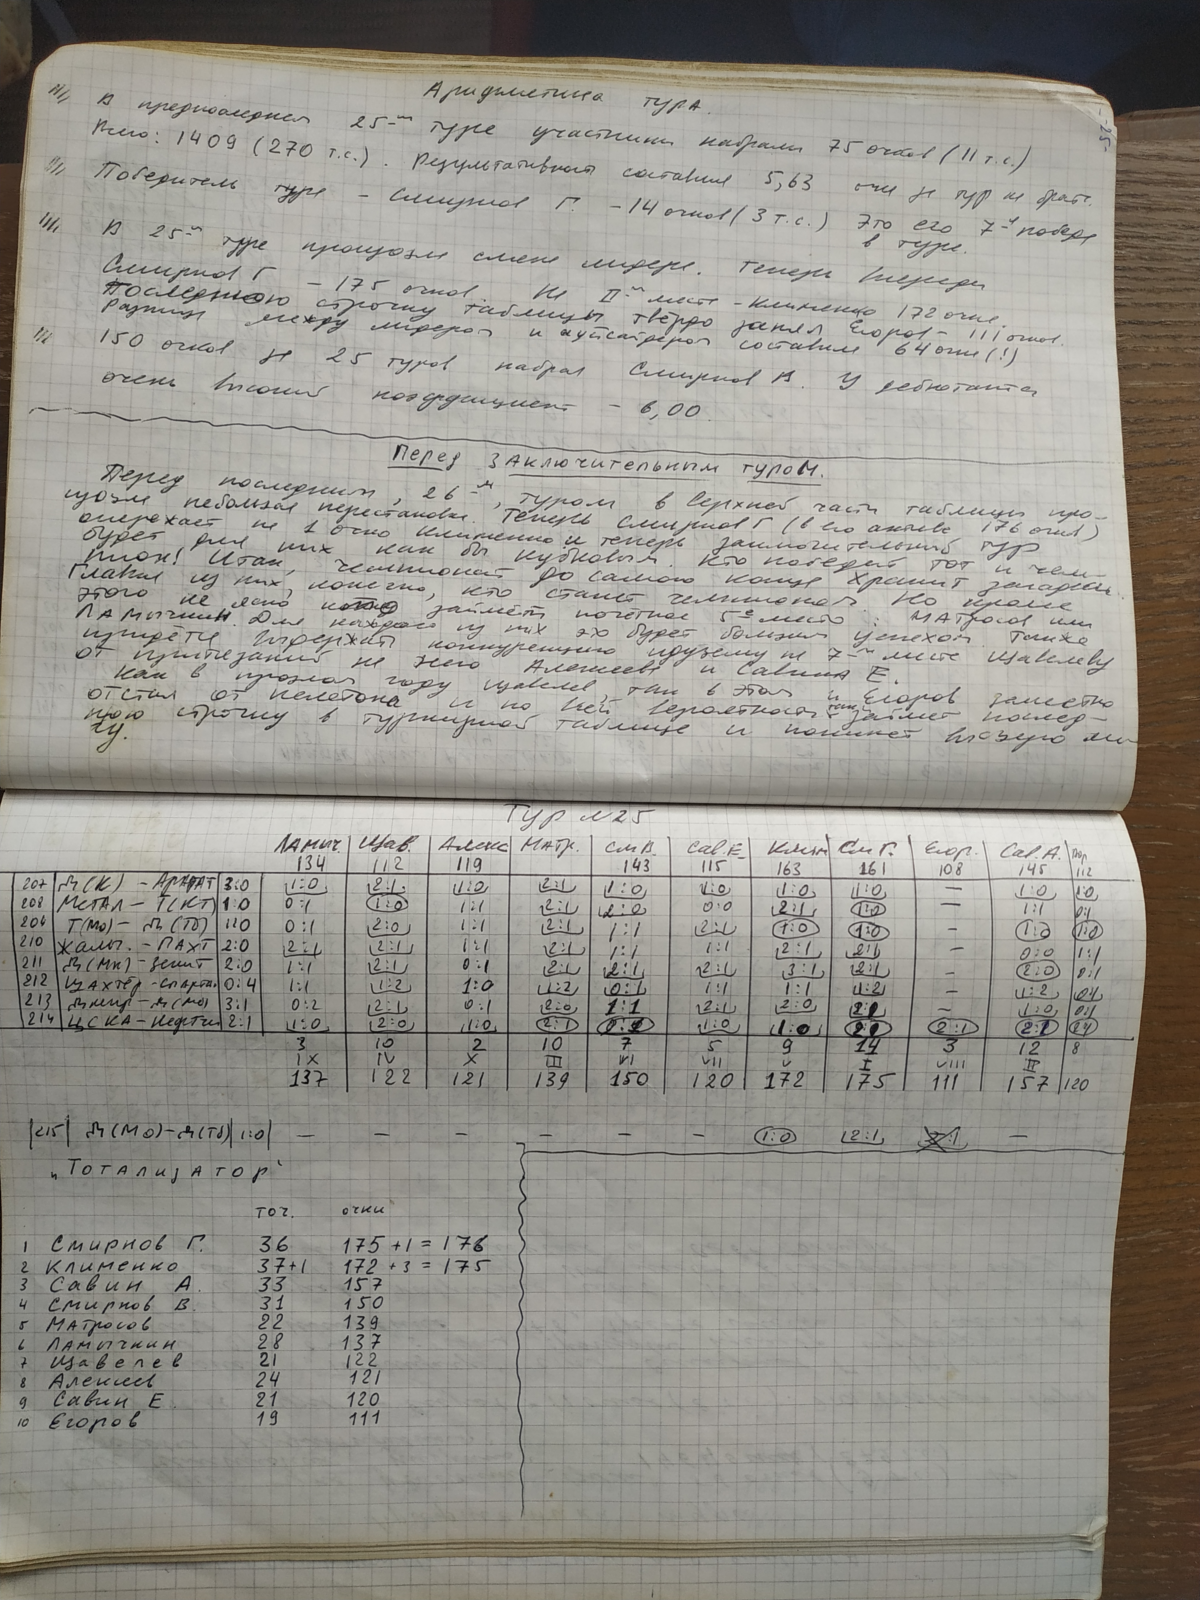 Арифметика тура.
-25-
В предпоследнем 25-м туре участники набрали 75 очков (11 т.с.)
Всего: 1409 (270 т.с.). Результативность составила 5,63 очка за тур на брата.
Победитель тура - Смирнов Г. - 14 очков (3 т.с.) Это его 7-я победа
в туре.
В 25-м туре произошла смена лидера. Теперь впереди
Смирнов Г - 175 очков На II-м месте - Клименко 172 очка
Последнюю строчку таблицы твёрдо занял Егоров - 111 очков.
Разница между лидером и аутсайдером составила 64 очка (!)
150 очков за 25 туров набрал Смирнов В. У дебютанта
очень высокий коэффициент - 6,00.
Перед заключительным туром.
Перед последним, 26-м, туром в верхней части таблицы про-
изошла небольшая перестановка. Теперь Смирнов Г (в его активе 176 очков)
опережает на 1 очко Клименко и теперь заключительный тур
будет для них как бы кубковым. Кто победит тот и чем-
пион! Итак, чемпионат до самого конца хранит загадки.
Главная из них, конечно, кто станет чемпионом. Но кроме
этого не ясно кто займёт почётное 5-е место: Матросов или
Ламычкин. Для каждого из них это будет большим успехом. Также
придётся выдержать конкуренцию идущему на 7-м месте Щавелеву
от притязаний на него Алексеева и Савина Е.
Как в прошлом году Щавелев, так в этом и Егоров заметно
отстал от пелетона и по всей вероятности займёт послед-
нюю строчку в турнирной таблице и покинет высшую ли-
гу.
Тур №25
Ламыч. Щав. Алекс Матр. См В. Сав. Е. Клим См Г. Егор. Сав. А.
134 112 119 143 115 163 161 108 145 112
207 Д(К) - Арарат 3:0 1:0 2:1 1:0 2:1 1:0 1:0 1:0 1:0 — 1:0 1:0
208 Метал - Т(КТ) 1:0 0:1 1:0 1:1 2:1 2:0 0:0 2:1 1:0 — 1:1 0:1
209 Т(Мо) - Д(Тб) 1:0 0:1 2:0 1:1 2:1 1:1 2:1 1:0 1:0 — 1:0 1:0
210 Жальг. - Пахт 2:0 2:1 2:1 1:1 2:1 1:1 1:1 2:1 2:1 — 0:0 1:1
211 Д(Мн) - Зенит 2:0 1:1 2:1 0:1 2:1 2:1 2:1 3:1 2:1 — 2:0 0:1
212 Шахтёр - Спартак 0:4 1:1 1:2 1:0 1:2 0:1 1:1 1:1 1:2 — 1:2 0:1
213 Днепр - Д(Мо) 3:1 0:2 2:1 0:1 2:0 1:1 2:1 2:0 2:1 — 1:0 0:1
214 ЦСКА - Нефтчи 2:1 1:0 2:0 1:0 2:1 1:0 1:0 2:1 2:1 2:1
3 10 2 10 7 5 9 14 3 12 8
IX IV X III VI VII V I VIII II
137 122 121 139 150 120 172 175 111 157 120
215 Д(Мо) - Д(Тб) 1:0 — — — — — — 1:0 2:1 2:1 —
"Тотализатор"
точ. очки
1 Смирнов Г. 36 175 +1 = 176
2 Клименко 37+1 172 +3 = 175
3 Савин А. 33 157
4 Смирнов В. 31 150
5 Матросов 22 139
6 Ламычкин 28 137
7 Щавелев 21 122
8 Алексеев 24 121
9 Савин Е. 21 120
10 Егоров 19 111